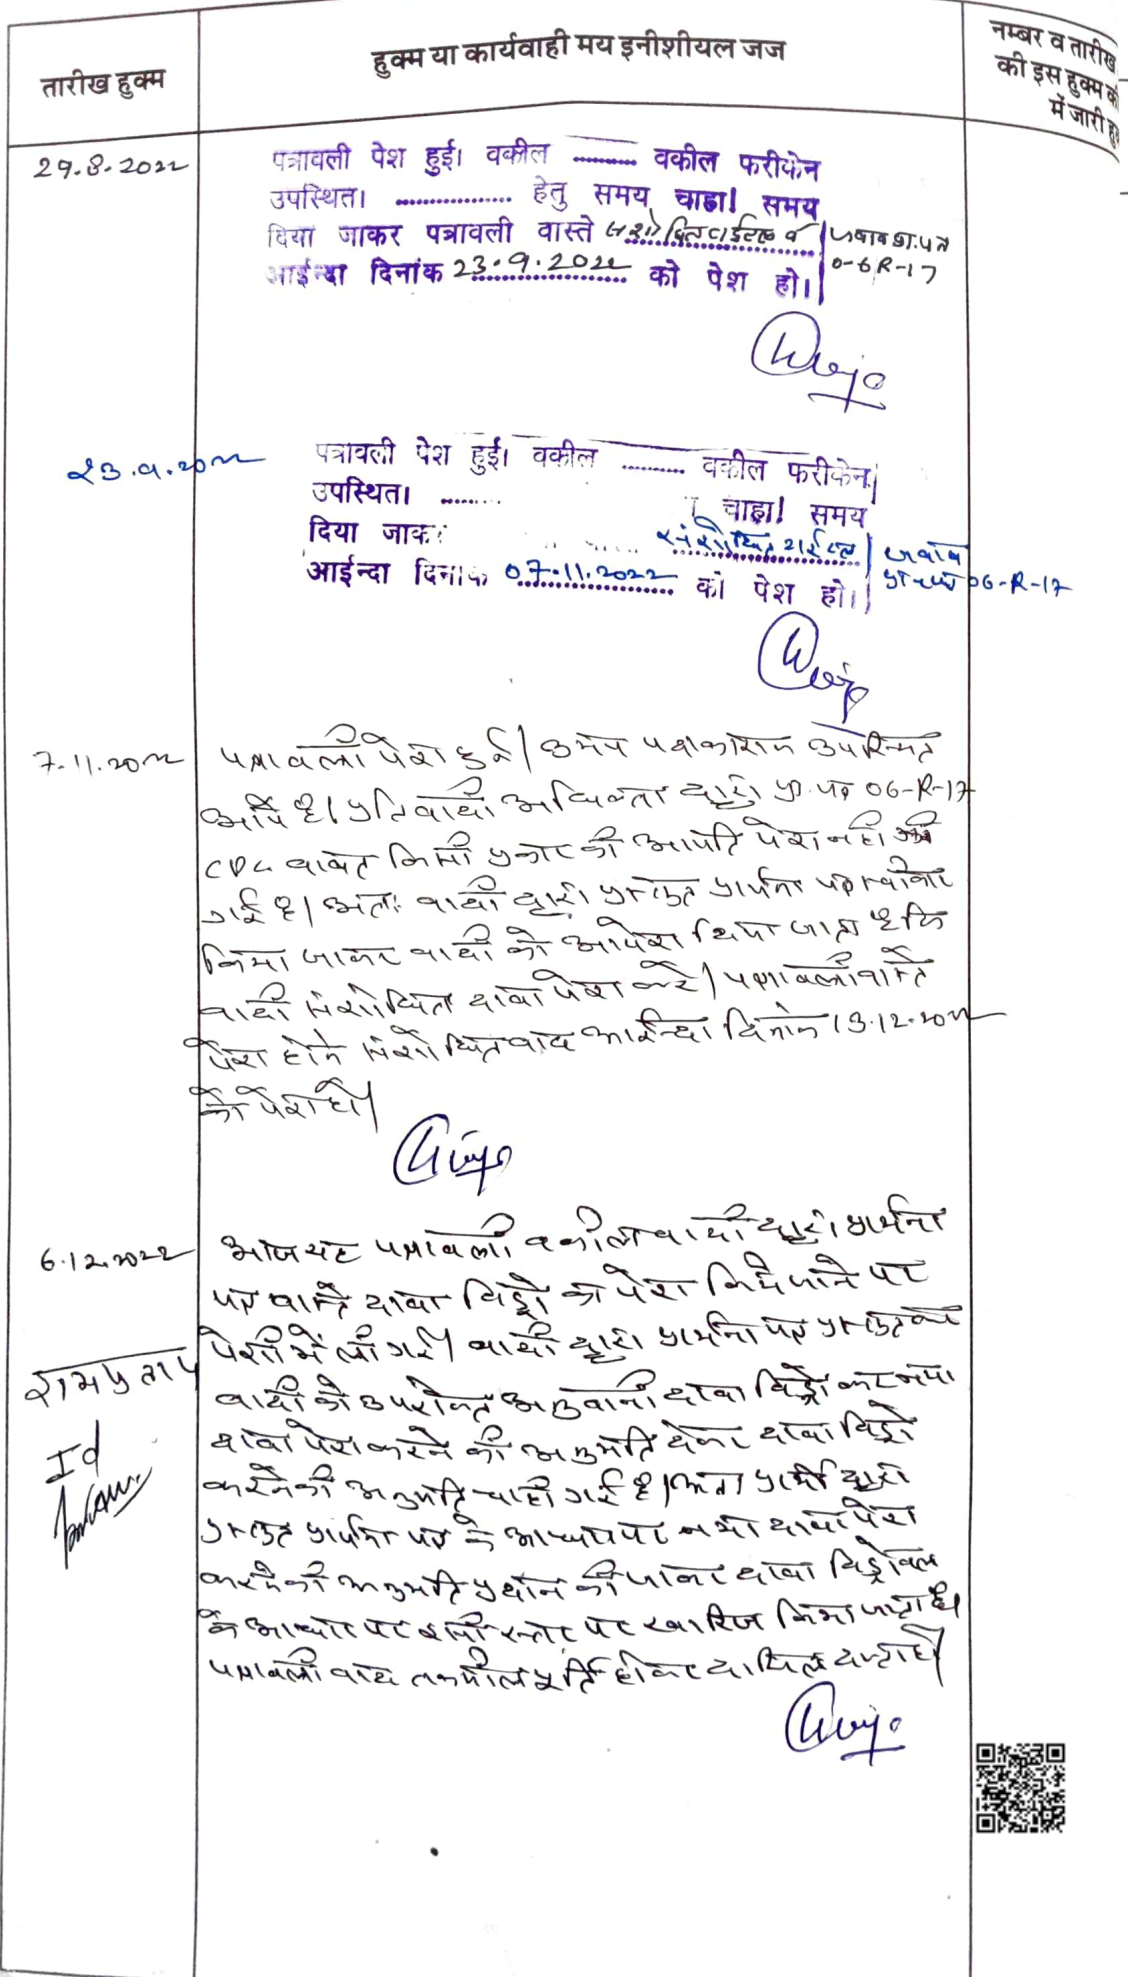 तारीख हुक्म
हुक्म या कार्यवाही मय इनीशीयल जज
नम्बर व तारीख
की इस हुक्म की
में जारी हु
29.8.2022
पत्रावली पेश हुई। वकील ........... वकील फरीकेन
उपस्थित। .................. हेतु समय चाहा। समय
दिया जाकर पत्रावली वास्ते संशोधित टाईटल व जवाब प्रा. पत्र
0-6 R-17
आईन्दा दिनांक 23.9.2022 को पेश हो।
23.9.2022
पत्रावली पेश हुई। वकील ........... वकील फरीकेन
उपस्थित। ........ चाहा। समय
दिया जाकर संशोधित टाईटल जवाब
06-R-17
आईन्दा दिनांक 07.11.2022 को पेश हो।
7.11.2022
पत्रावली पेश हुई। उभय पक्षकारान उपस्थित
आये है। प्रतिवादी अधिवक्ता द्वारा प्रा. पत्र 06-R-17
CPC बाबत किसी प्रकार की आपति पेश नही की
गई है। अतः वादी द्वारा प्रस्तुत प्रार्थना पत्र स्वीकार
किया जाकर वादी को आदेश दिया जाता है कि
वादी संशोधित दावा पेश करे। पत्रावली वास्ते
पेश होने संशोधित वाद आईन्दा दिनांक 13.12.2022
को पेश हो।
6.12.2022
आज यह पत्रावली वकील वादी द्वारा प्रार्थना
पत्र वास्ते दावा विड्रो का पेश किये जाने पर
पेशी में ली गई। वादी द्वारा प्रार्थना पत्र प्रस्तुत कर
रामप्रताप
वादी को उपरोक्त अनुवानी दावा विड्रो कर नया
दावा पेश करने की अनुमति देकर दावा विड्रो
Id
करने की अनुमति चाही गई है। अतः प्रार्थी द्वारा
प्रस्तुत प्रार्थना पत्र के आधार पर नया दावा पेश
करने की अनुमति प्रदान की जाकर दावा विड्रोवल
के आधार पर इसी स्तर पर खारिज किया जाता है।
पत्रावली बाद तकमील पूर्ति होकर दाखिल दफ्तर हो।